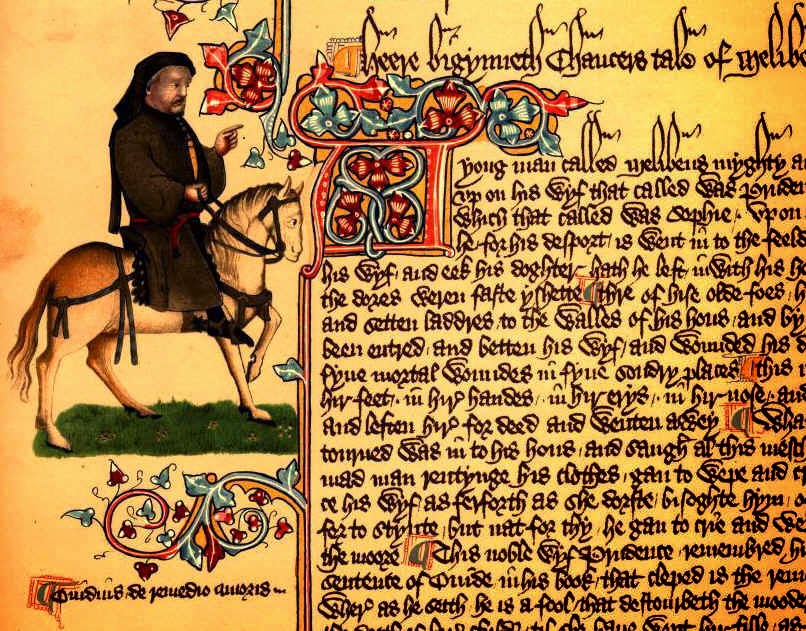 Heere bigynneth Chaucers tale of Melibe
A yong man called Melibeus myghty a
vp on his wyf that called was Pruden
which that called was Sophie / Vpon
he for his desport / is went in to the feeld
his wyf / and eek his doghter / hath he left in with his h
the dores weren faste yshette / Thre of hise olde foes / h
and setten laddres / to the walles of his hous / and by
been entred / and betten his wyf / and wounded his d
fyue mortal woundes in fyue sondry places / This i
hir feet / in hir handes / in hir erys / in hir nose / and
and leften hir for deed and wenten awey / Wha
torned was in to his hous / and saugh al this mesch
mad man rentynge his clothes / gan to wepe and c
ce his wyf as ferforth as she dorste / bisoghte hym
for to stynte / but nat for thy / he gan to crie and we
the moore / This noble wyf Prudence / remembred h
sentence of Ouide in his book / that cleped is the rem
wher as he seith / he is a fool / that destourbeth the mooder
Ouidius de remedio amoris